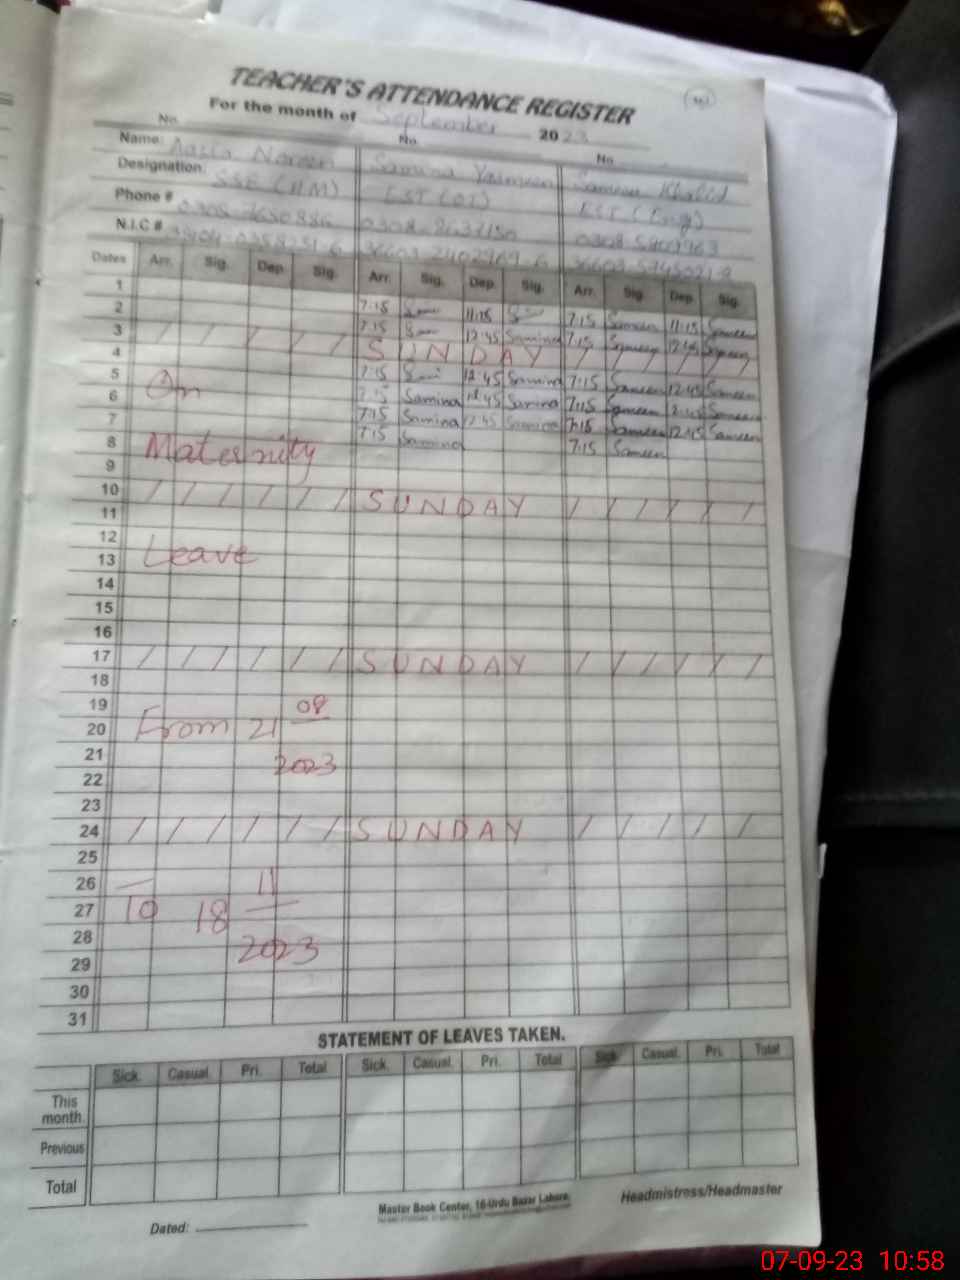 TEACHER'S ATTENDANCE REGISTER
For the month of September 2023
No. No. No.
Name: Samina Yasmeen Sameen Khalid
Designation: SSE (IIM) EST (OT) EST (Eng)
Phone #
N.I.C #
Dates Arr. Sig. Dep. Sig. Arr. Sig. Dep. Sig. Arr. Sig. Dep. Sig.
1 7:15 11:15 7:15 Sameen 11:15 Sameen
2 7:15 12:45 Samina 7:15 Sameen 12:45 Sameen
3 / / / / / / SUNDAY / / / / / /
4 7:15 12:45 Samina 7:15 Sameen 12:45 Sameen
5 On 7:15 Samina 12:45 Samina 7:15 Sameen 12:45 Sameen
6 7:15 Samina 12:45 Samina 7:15 Sameen 12:45 Sameen
7 7:15 Samina 7:15 Sameen
8 Maternity
9
10 / / / / / / SUNDAY / / / / / /
11
12
13 Leave
14
15
16
17 / / / / / / SUNDAY / / / / / /
18
19 08
20 From 21
21 2023
22
23
24 / / / / / / SUNDAY / / / / /
25
26 11
27 To 18
28 2023
29
30
31
STATEMENT OF LEAVES TAKEN.
Sick. Casual. Pri. Total Sick. Casual. Pri. Total Sick. Casual. Pri. Total
This month.
Previous
Total
Master Book Center, 16-Urdu Bazar Lahore.
Headmistress/Headmaster
Dated:
07-09-23 10:58